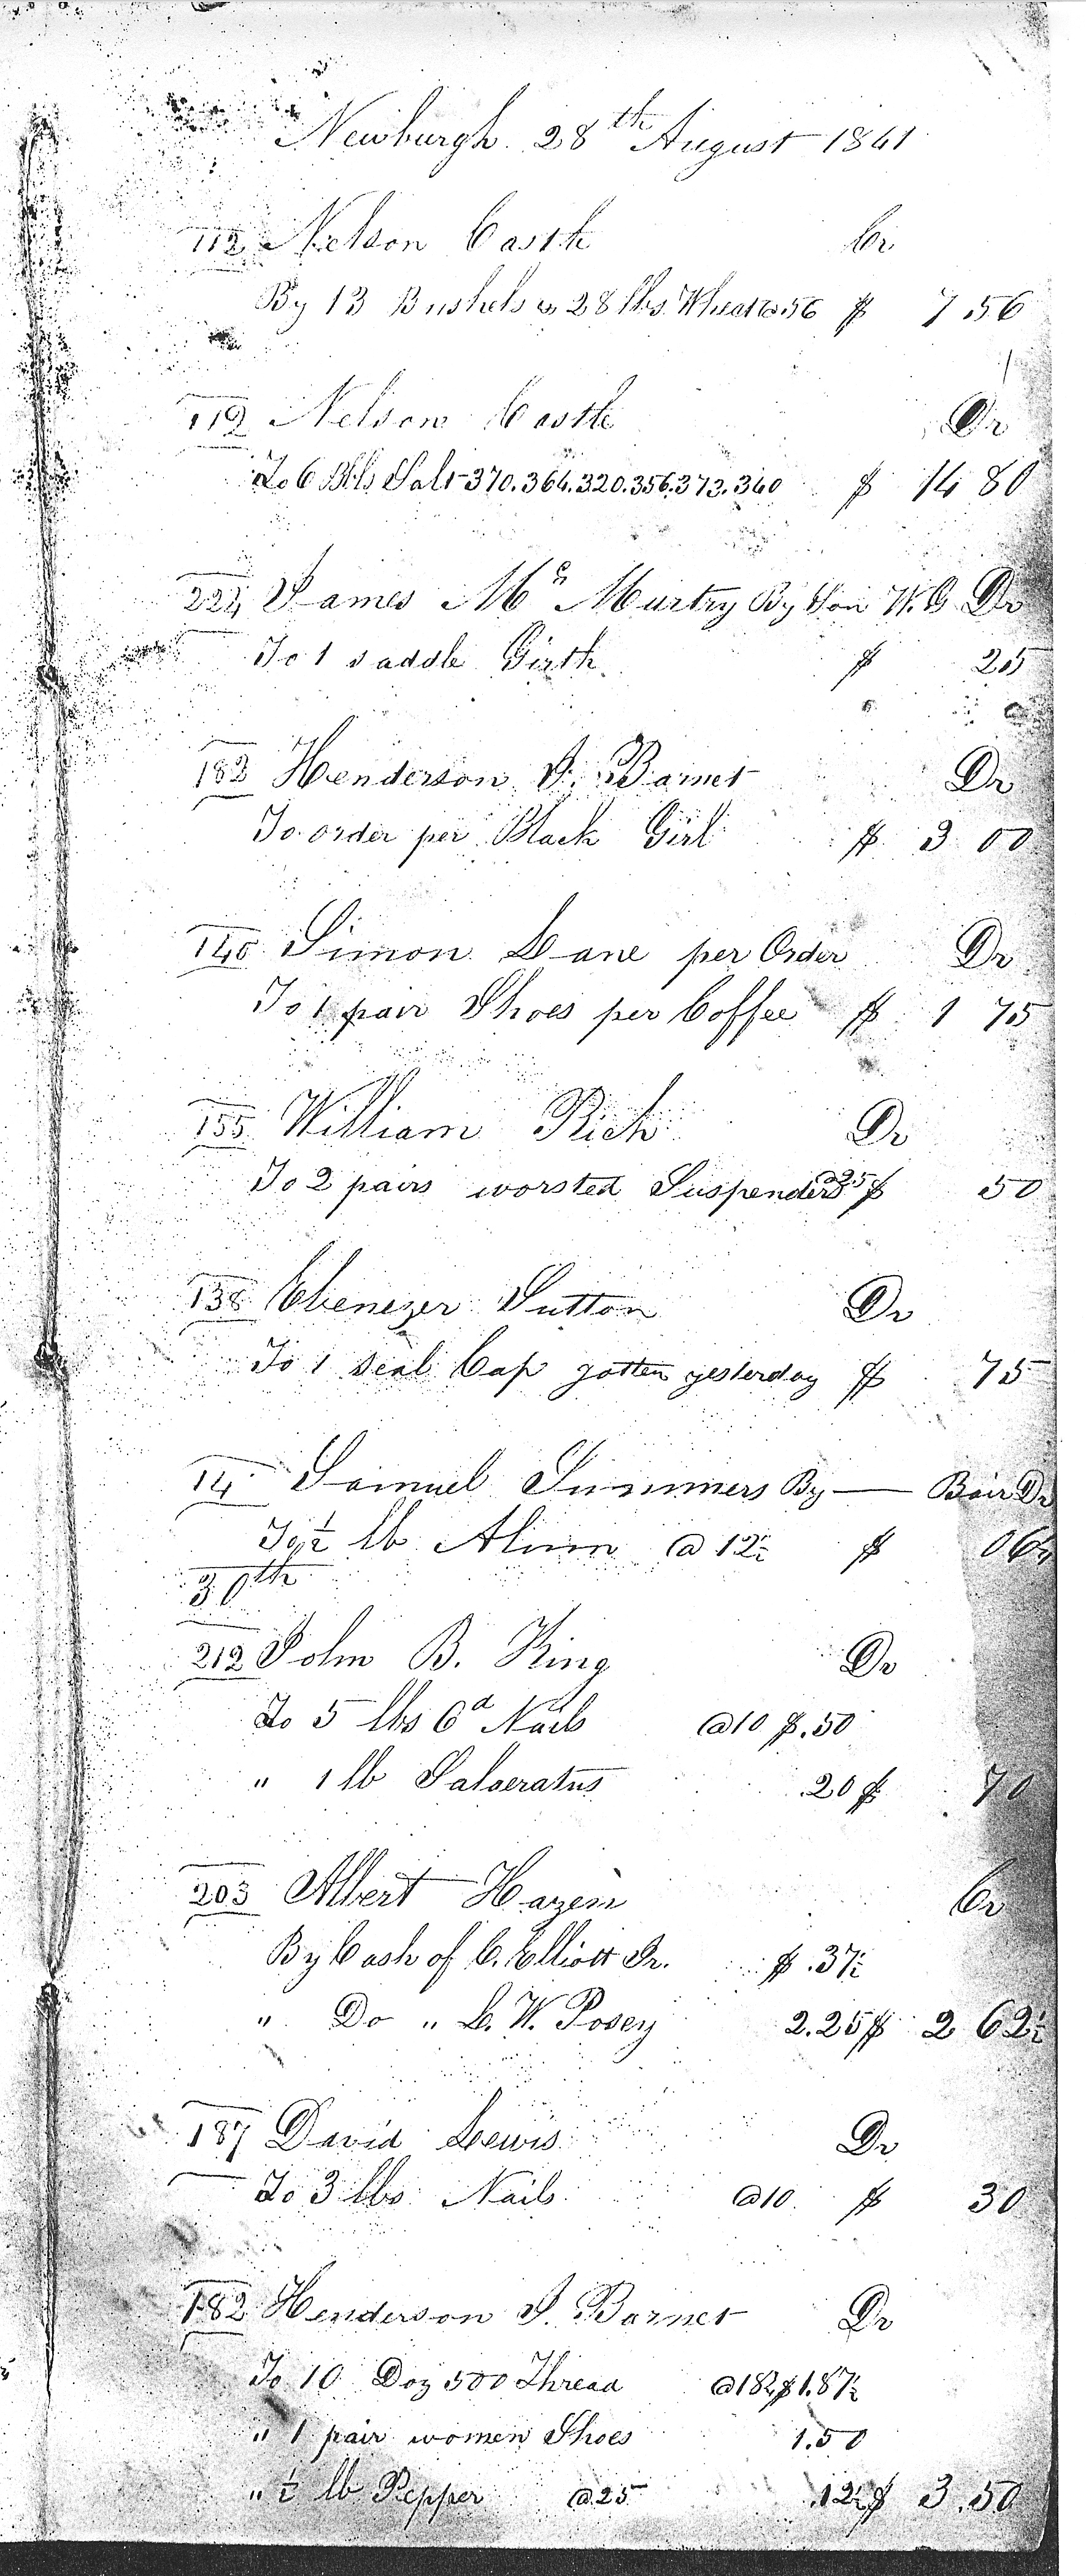 Newburgh 28th August 1841
112 Nelson Castle Cr
By 13 Bushels & 28 lbs Wheat @ 56 $ 7 56
112 Nelson Castle Dr
To 6 Bbls Salt 370.364.320.356.373.340 $ 14 80
224 James Mc Murtry By Son W.G. Dr
To 1 saddle Girth $ 25
182 Henderson J. Barnet Dr
To order per Black Girl $ 3 00
140 Simon Lane per Order Dr
To 1 pair Shoes per Coffee $ 1 75
155 William Rich Dr
To 2 pairs worsted Suspenders @25 $ 50
138 Ebenezer Sutton Dr
To 1 seal Cap gotten yesterday $ 75
14 Samuel Summers By — Bair Dr
To ½ lb Alum @ 12½ $ 06¼
30th
212 John B. King Dr
To 5 lbs 6d Nails @10 $.50
" 1 lb Salaeratus .20 $ 70
203 Albert Hazen Cr
By Cash of C. Elliott Jr. $ .37½
" Do " L. W. Posey 2.25 $ 2 62½
187 David Lewis Dr
To 3 lbs Nails @10 $ 30
182 Henderson J. Barnet Dr
To 10 Doz 500 Thread @18¾ $1.87½
" 1 pair women Shoes 1.50
" ½ lb Pepper @25 .12½ $ 3.50